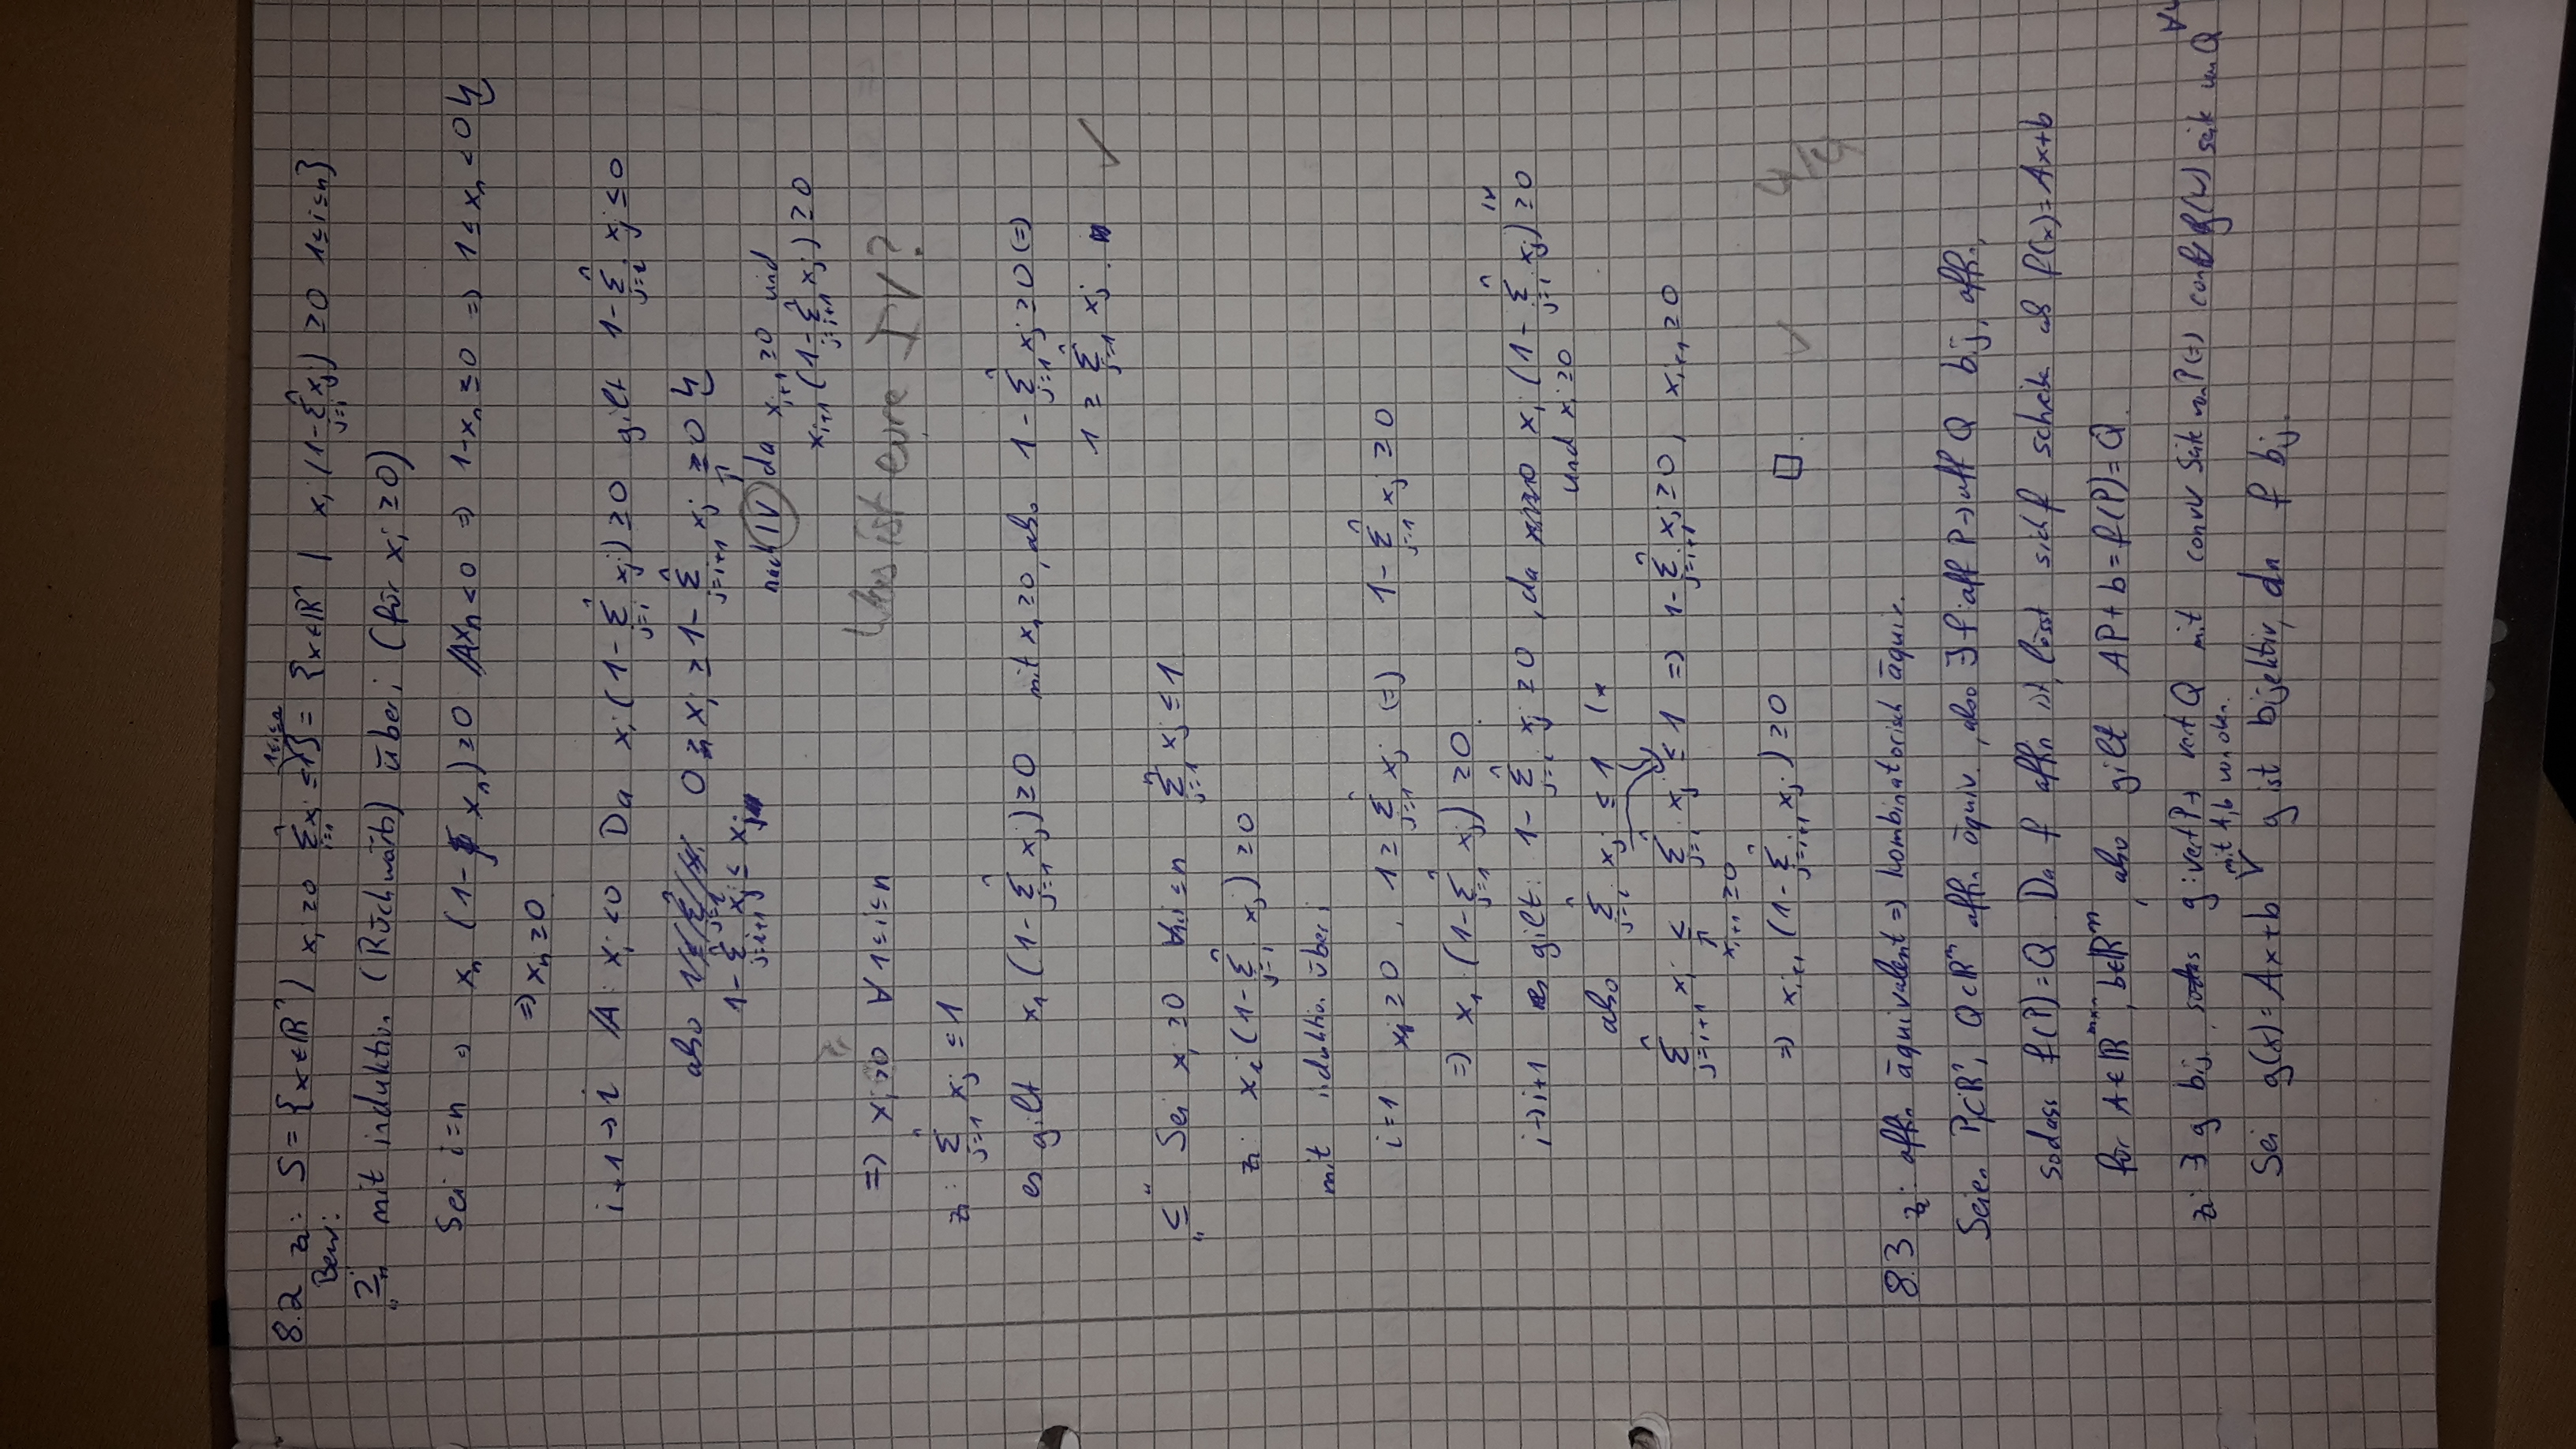 8.2 z: S = {x ∈ ℝⁿ | x_i ≥ 0 Σ_{i=1}^n x_i ≤ 1} = {x ∈ ℝⁿ | x_i (1 - Σ_{j=i}^n x_j) ≥ 0 1 ≤ i ≤ n}
1≤i≤n
Bew:
"⊇" mit induktion (Rückwärts) über i (für x_i ≥ 0)
Sei i=n ⇒ x_n (1 - x_n) ≥ 0 A x_n < 0 ⇒ 1-x_n ≤ 0 ⇒ 1 ≤ x_n < 0 ↯
⇒ x_n ≥ 0
i+1 → i A: x_i < 0 Da x_i (1 - Σ_{j=i}^n x_j) ≥ 0 gilt 1 - Σ_{j=i}^n x_j ≤ 0
also 0 ≥ x_i ≥ 1 - Σ_{j=i+1}^n x_j ≥ 0 ↯
1 - Σ_{j=i+1}^n x_j ≤ x_i
nach IV da x_{i+1} ≥ 0 und
x_{i+1} (1 - Σ_{j=i+1}^n x_j) ≥ 0
⇒ x_i ≥ 0 ∀ 1≤i≤n
Was ist eure IV?
z: Σ_{j=1}^n x_j ≤ 1
es gilt x_1 (1 - Σ_{j=1}^n x_j) ≥ 0 mit x_1 ≥ 0, also 1 - Σ_{j=1}^n x_j ≥ 0 ⇔
1 ≥ Σ_{j=1}^n x_j. ✓
"⊆" Sei x_i ≥ 0 ∀ 1≤i≤n Σ_{j=1}^n x_j ≤ 1
z: x_i (1 - Σ_{j=i}^n x_j) ≥ 0
mit induktion über i
i=1 x_1 ≥ 0, 1 ≥ Σ_{j=1}^n x_j ⇔ 1 - Σ_{j=1}^n x_j ≥ 0
⇒ x_1 (1 - Σ_{j=1}^n x_j) ≥ 0
i→i+1 es gilt: 1 - Σ_{j=i}^n x_j ≥ 0, da x_i (1 - Σ_{j=i}^n x_j) ≥ 0
IV
und x_i ≥ 0
also Σ_{j=i}^n x_j ≤ 1
Σ_{j=i+1}^n x_j ≤ Σ_{j=i}^n x_j ≤ 1 ⇒ 1 - Σ_{j=i+1}^n x_j ≥ 0, x_{i+1} ≥ 0
x_{i+1} ≥ 0
⇒ x_{i+1} (1 - Σ_{j=i+1}^n x_j) ≥ 0 □ ✓ 4/4
8.3 z: affin äquivalent ⇒ kombinatorisch äquiv.
Seien P⊂ℝⁿ, Q⊂ℝᵐ affin äquiv., also ∃ f: aff P → aff Q bij, affin,
sodass f(P) = Q. Da f affin ist, lässt sich f schreiben als f(x) = Ax+b
für A∈ℝ^{m×n}, b∈ℝ^m, also gilt AP+b = f(P) = Q.
z: ∃ g bij. sodass g: vert P → vert Q mit conv V Seite von P ⇔ conv g(V) seite von Q
mit A, b von oben.
Sei g(x) = Ax+b g ist bijektiv, da f bij.